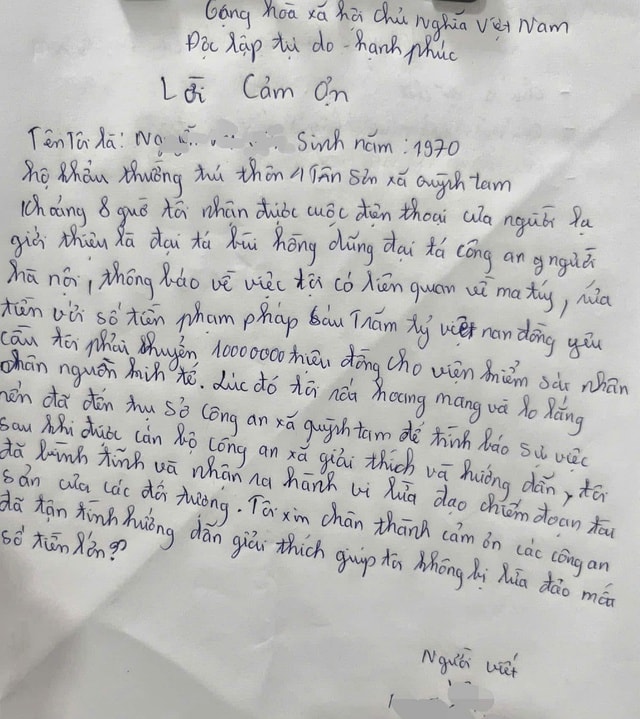 Cộng hòa xã hội chủ nghĩa Việt Nam
Độc lập tự do - hạnh phúc
Lời Cảm Ơn
Tên Tôi là: Sinh năm: 1970
hộ khẩu thường trú thôn 1 Tân Sơn xã quỳnh tam
khoảng 8 giờ tôi nhận được cuộc điện thoại của người lạ
giới thiệu là đại tá bùi hồng dũng đại tá công an người
hà nội, thông báo về việc tôi có liên quan về ma túy, rửa
tiền với số tiền phạm pháp sáu Trăm tỷ việt nan đồng yêu
cầu tôi phải chuyển 10000000 triệu đồng cho viện kiểm sát nhân
chân nguồn kinh tế. Lúc đó tôi rất hoang mang và lo lắng
nên đã đến trụ sở công an xã quỳnh tam để trình báo sự việc
sau khi được cán bộ công an xã giải thích và hướng dẫn, tôi
đã bình tĩnh và nhận ra hành vi lừa đạo chiếm đoạn tài
sản của các đối tượng. Tôi xin chân thành cảm ơn các công an
đã tận tình hướng dẫn giải thích giúp tôi không bị lừa đảo mất
số tiền lớn.
Người viết